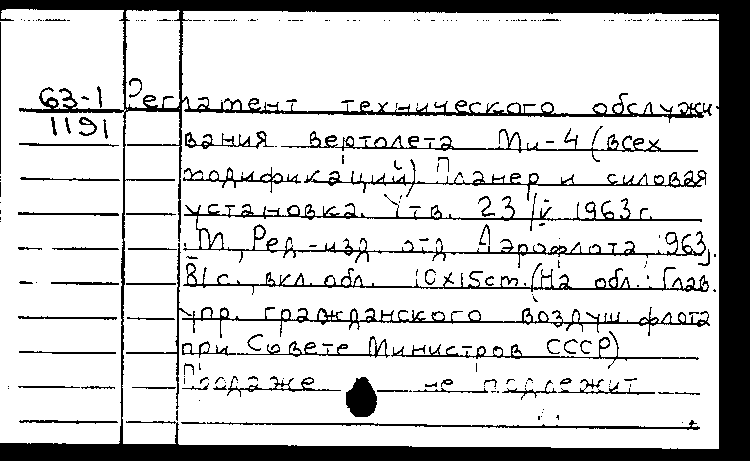 63-1 Регламент технического обслужи-
1191 вания вертолета Ми-4 (всех
модификаций). Планер и силовая
установка. Утв. 23/V 1963 г.
М., Ред.-изд. отд. Аэрофлота, 1963.
81 с., вкл. обл. 10x15cm. (На обл.: Глав.
упр. гражданского воздуш. флота
при Совете Министров СССР)
Продаже не подлежит